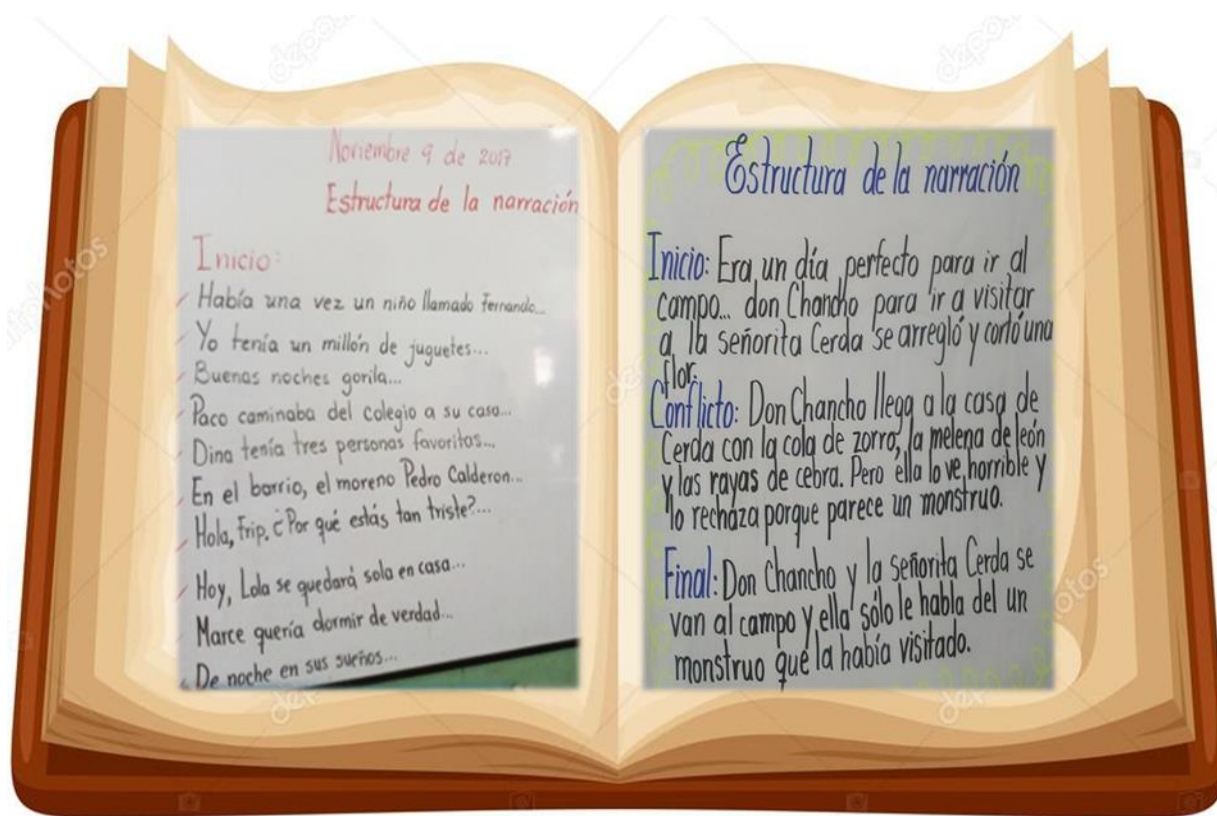 Noviembre 9 de 2017
Estructura de la narración
Inicio:
Había una vez un niño llamado Fernando...
Yo tenía un millón de juguetes...
Buenas noches gorila...
Paco caminaba del colegio a su casa...
Dina tenía tres personas favoritas...
En el barrio, el moreno Pedro Calderon...
Hola, Frip. ¿Por qué estás tan triste?...
Hoy, Lola se quedará sola en casa...
Marce quería dormir de verdad...
De noche en sus sueños...
Estructura de la narración
Inicio: Era un día perfecto para ir al
campo... don Chancho para ir a visitar
a la señorita Cerda se arregló y cortó una
flor.
Conflicto: Don Chancho llega a la casa de
Cerda con la cola de zorro, la melena de león
y las rayas de cebra. Pero ella lo ve horrible y
lo rechaza porque parece un monstruo.
Final: Don Chancho y la señorita Cerda se
van al campo y ella sólo le habla del un
monstruo que la había visitado.
depositphotos